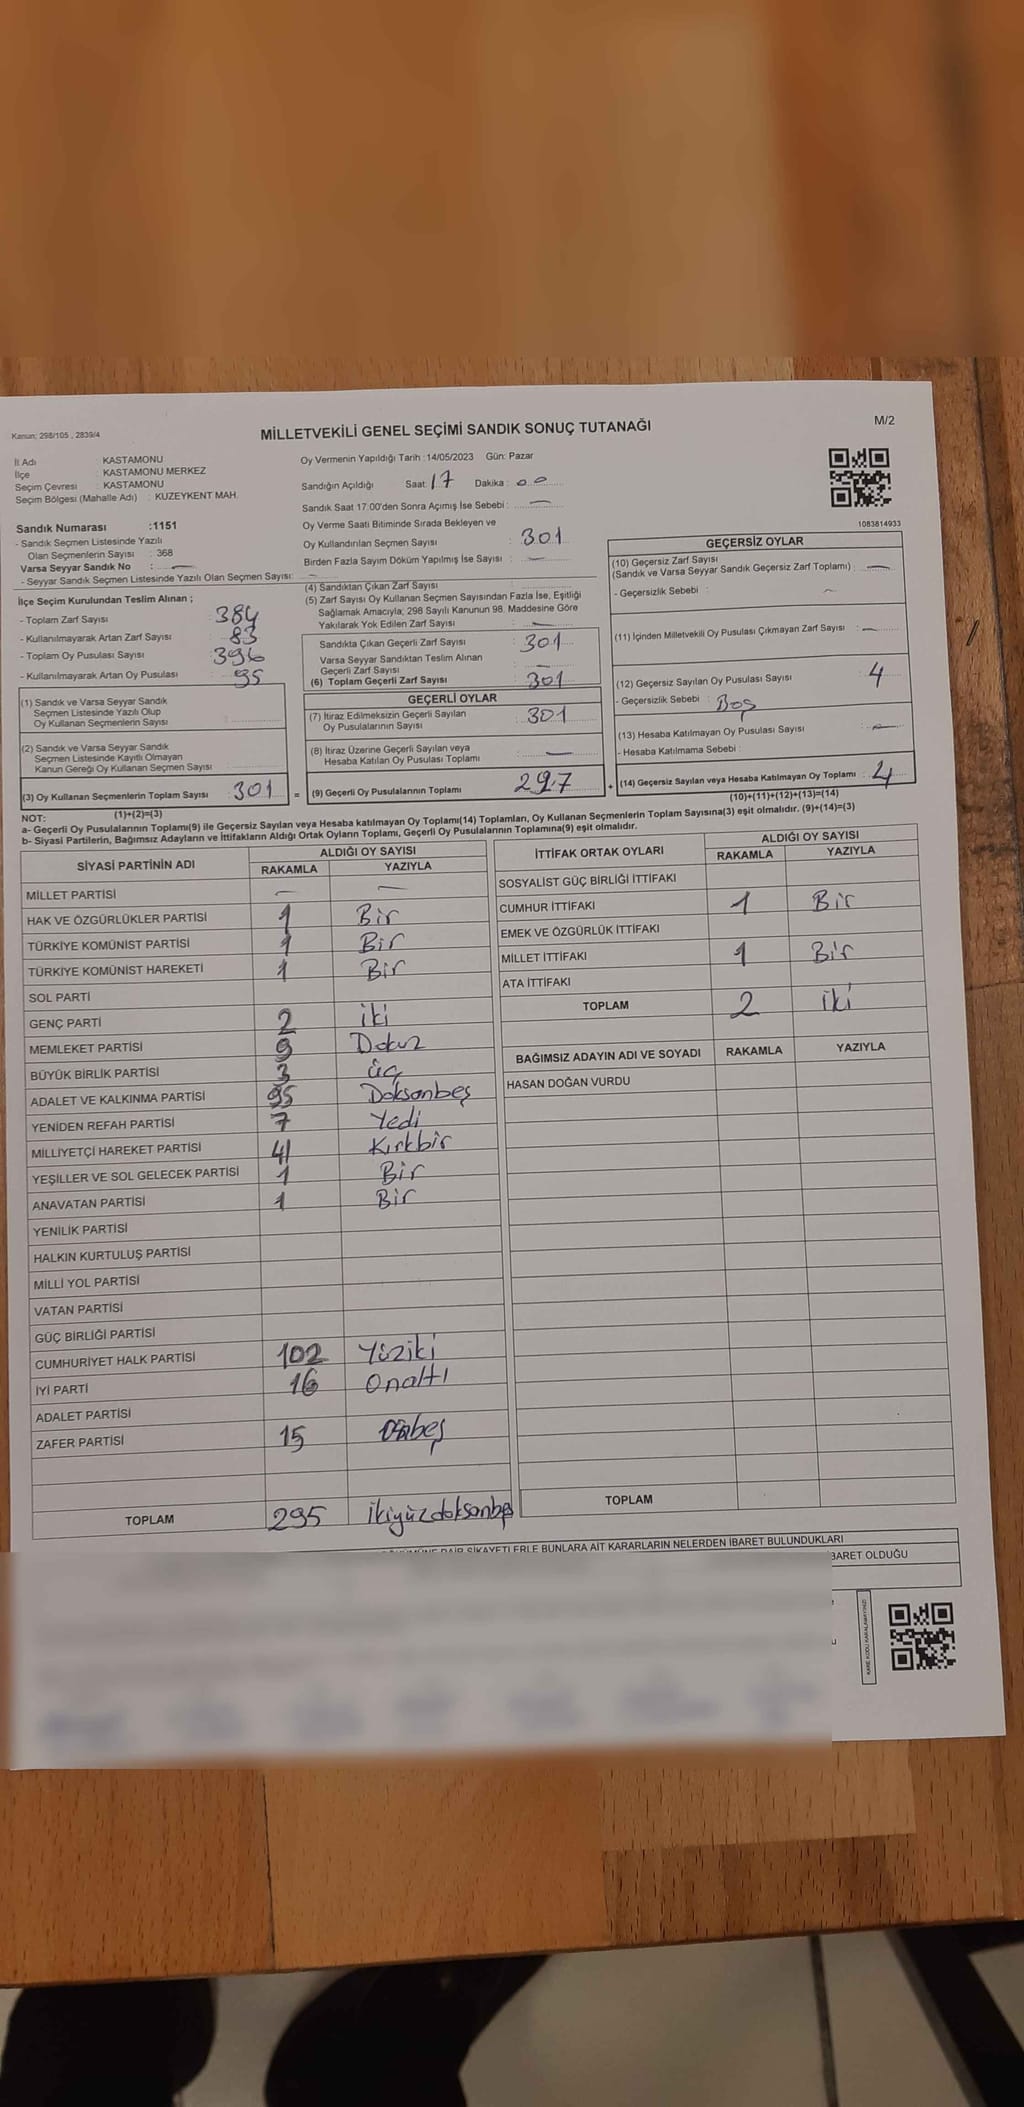 Kanun: 298/105 , 2839/4
MİLLETVEKİLİ GENEL SEÇİMİ SANDIK SONUÇ TUTANAĞI
M/2
İl Adı KASTAMONU
İlçe : KASTAMONU MERKEZ
Seçim Çevresi : KASTAMONU
Seçim Bölgesi (Mahalle Adı) : KUZEYKENT MAH.
Sandık Numarası :1151
- Sandık Seçmen Listesinde Yazılı
Olan Seçmenlerin Sayısı : 368
Varsa Seyyar Sandık No : —
- Seyyar Sandık Seçmen Listesinde Yazılı Olan Seçmen Sayısı: —
Oy Vermenin Yapıldığı Tarih :14/05/2023 Gün: Pazar
Sandığın Açıldığı Saat: 17 Dakika : 00
Sandık Saat 17.00'den Sonra Açımış İse Sebebi : —
Oy Verme Saati Bitiminde Sırada Bekleyen ve
Oy Kullandırılan Seçmen Sayısı : 301
Birden Fazla Sayım Döküm Yapılmış İse Sayısı : —
1083814933
İlçe Seçim Kurulundan Teslim Alınan ;
- Toplam Zarf Sayısı : 384
- Kullanılmayarak Artan Zarf Sayısı : 83
- Toplam Oy Pusulası Sayısı : 396
- Kullanılmayarak Artan Oy Pusulası : 95
(1) Sandık ve Varsa Seyyar Sandık
Seçmen Listesinde Yazılı Olup
Oy Kullanan Seçmenlerin Sayısı :
(2) Sandık ve Varsa Seyyar Sandık
Seçmen Listesinde Kayıtlı Olmayan
Kanun Gereği Oy Kullanan Seçmen Sayısı :
(3) Oy Kullanan Seçmenlerin Toplam Sayısı : 301
(1)+(2)=(3)
(4) Sandıktan Çıkan Zarf Sayısı :
(5) Zarf Sayısı Oy Kullanan Seçmen Sayısından Fazla İse, Eşitliği
Sağlamak Amacıyla; 298 Sayılı Kanunun 98. Maddesine Göre
Yakılarak Yok Edilen Zarf Sayısı : —
Sandıkta Çıkan Geçerli Zarf Sayısı : 301
Varsa Seyyar Sandıktan Teslim Alınan
Geçerli Zarf Sayısı : —
(6) Toplam Geçerli Zarf Sayısı : 301
GEÇERLİ OYLAR
(7) İtiraz Edilmeksizin Geçerli Sayılan
Oy Pusulalarının Sayısı : 301
(8) İtiraz Üzerine Geçerli Sayılan veya
Hesaba Katılan Oy Pusulası Toplamı : —
= (9) Geçerli Oy Pusulalarının Toplamı : 297 +
GEÇERSİZ OYLAR
(10) Geçersiz Zarf Sayısı
(Sandık ve Varsa Seyyar Sandık Geçersiz Zarf Toplamı) : —
- Geçersizlik Sebebi : —
(11) İçinden Milletvekili Oy Pusulası Çıkmayan Zarf Sayısı : —
(12) Geçersiz Sayılan Oy Pusulası Sayısı : 4
- Geçersizlik Sebebi : Boş
(13) Hesaba Katılmayan Oy Pusulası Sayısı : —
- Hesaba Katılmama Sebebi :
(14) Geçersiz Sayılan veya Hesaba Katılmayan Oy Toplamı : 4
(10)+(11)+(12)+(13)=(14)
NOT:
a- Geçerli Oy Pusulalarının Toplamı(9) ile Geçersiz Sayılan veya Hesaba katılmayan Oy Toplamı(14) Toplamları, Oy Kullanan Seçmenlerin Toplam Sayısına(3) eşit olmalıdır. (9)+(14)=(3)
b- Siyasi Partilerin, Bağımsız Adayların ve İttifakların Aldığı Ortak Oyların Toplamı, Geçerli Oy Pusulalarının Toplamına(9) eşit olmalıdır.
SİYASİ PARTİNİN ADI ALDIĞI OY SAYISI
RAKAMLA YAZIYLA
MİLLET PARTİSİ — —
HAK VE ÖZGÜRLÜKLER PARTİSİ 1 Bir
TÜRKİYE KOMÜNİST PARTİSİ 1 Bir
TÜRKİYE KOMÜNİST HAREKETİ 1 Bir
SOL PARTİ
GENÇ PARTİ 2 iki
MEMLEKET PARTİSİ 9 Dokuz
BÜYÜK BİRLİK PARTİSİ 3 üç
ADALET VE KALKINMA PARTİSİ 95 Doksanbeş
YENİDEN REFAH PARTİSİ 7 Yedi
MİLLİYETÇİ HAREKET PARTİSİ 41 Kırkbir
YEŞİLLER VE SOL GELECEK PARTİSİ 1 Bir
ANAVATAN PARTİSİ 1 Bir
YENİLİK PARTİSİ
HALKIN KURTULUŞ PARTİSİ
MİLLİ YOL PARTİSİ
VATAN PARTİSİ
GÜÇ BİRLİĞİ PARTİSİ
CUMHURİYET HALK PARTİSİ 102 Yüziki
İYİ PARTİ 16 Onaltı
ADALET PARTİSİ
ZAFER PARTİSİ 15 Onbeş
TOPLAM 295 ikiyüzdoksanbeş
İTTİFAK ORTAK OYLARI ALDIĞI OY SAYISI
RAKAMLA YAZIYLA
SOSYALİST GÜÇ BİRLİĞİ İTTİFAKI
CUMHUR İTTİFAKI 1 Bir
EMEK VE ÖZGÜRLÜK İTTİFAKI
MİLLET İTTİFAKI 1 Bir
ATA İTTİFAKI
TOPLAM 2 iki
BAĞIMSIZ ADAYIN ADI VE SOYADI RAKAMLA YAZIYLA
HASAN DOĞAN VURDU
TOPLAM
DAİR ŞİKAYETLERLE BUNLARA AİT KARARLARIN NELERDEN İBARET BULUNDUKLARI
BARET OLDUĞU